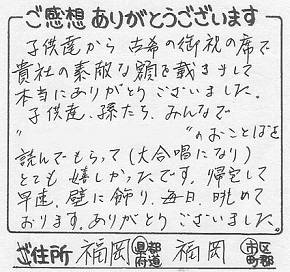 ご感想ありがとうございます
子供達から古希の御祝の席で
貴社の素敵な額を戴きまして
本当にありがとうございました。
子供達、孫たち、みんなで
〃　　　　　〃のおことばを
読んでもらって(大合唱になり)
とても嬉しかったです。帰宅して
早速、壁に飾り、毎日、眺めて
おります。ありがとうございました。
ご住所 福岡 都道府県 福岡 市区町郡